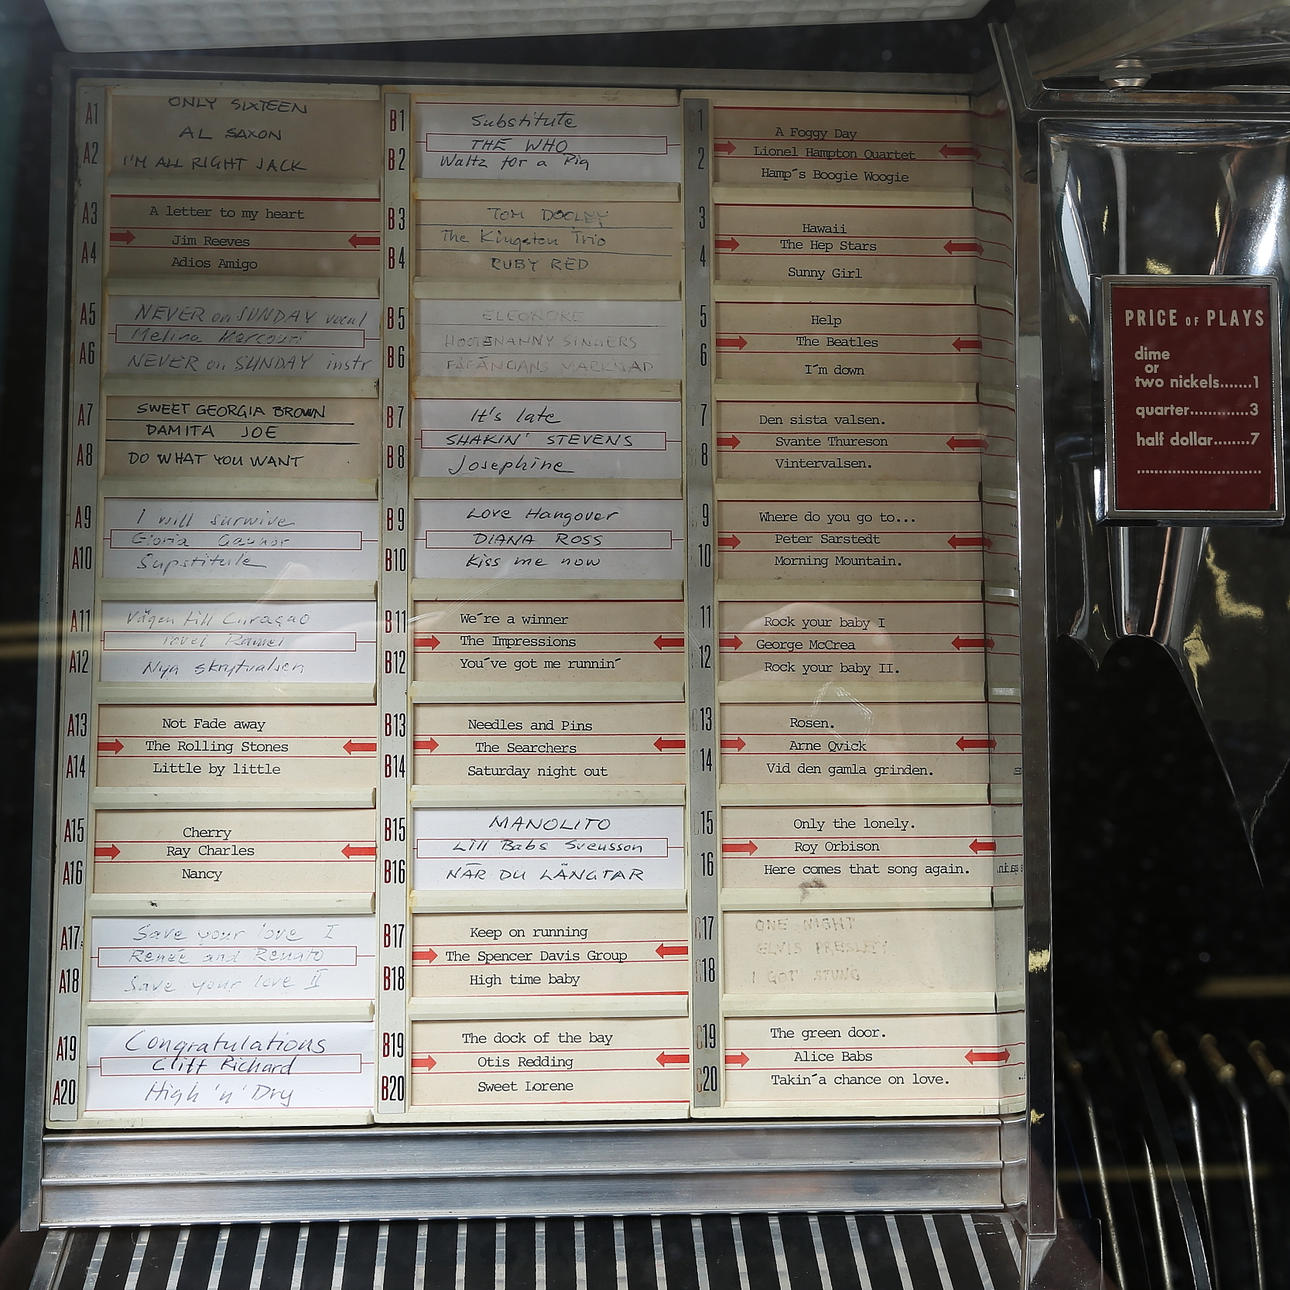 A1
ONLY SIXTEEN
AL SAXON
A2
I'M ALL RIGHT JACK
A3
A letter to my heart
Jim Reeves
A4
Adios Amigo
A5
NEVER on SUNDAY vocal
Melina Mercouri
A6
NEVER on SUNDAY instr
A7
SWEET GEORGIA BROWN
DAMITA JOE
A8
DO WHAT YOU WANT
A9
I will survive
Gloria Gaynor
A10
Supstitule
A11
Vägen till Curaçao
Povel Ramel
A12
Nya skrytvalsen
A13
Not Fade away
The Rolling Stones
A14
Little by little
A15
Cherry
Ray Charles
A16
Nancy
A17
Save your love I
Reneé and Renato
A18
Save your love II
A19
Congratulations
Cliff Richard
A20
High 'n' Dry
B1
Substitute
THE WHO
B2
Waltz for a Pig
B3
TOM DOOLEY
The Kingston Trio
B4
RUBY RED
B5
ELEONORE
HOOTENANNY SINGERS
B6
FÄFÄNGANS MARKNAD
B7
It's late
SHAKIN' STEVENS
B8
Josephine
B9
Love Hangover
DIANA ROSS
B10
Kiss me now
B11
We´re a winner
The Impressions
B12
You´ve got me runnin´
B13
Needles and Pins
The Searchers
B14
Saturday night out
B15
MANOLITO
Lill Babs Svensson
B16
NÄR DU LÄNGTAR
B17
Keep on running
The Spencer Davis Group
B18
High time baby
B19
The dock of the bay
Otis Redding
B20
Sweet Lorene
1
A Foggy Day
Lionel Hampton Quartet
2
Hamp´s Boogie Woogie
3
Hawaii
The Hep Stars
4
Sunny Girl
5
Help
The Beatles
6
I´m down
7
Den sista valsen.
Svante Thureson
8
Vintervalsen.
9
Where do you go to...
Peter Sarstedt
10
Morning Mountain.
11
Rock your baby I
George McCrea
12
Rock your baby II.
13
Rosen.
Arne Qvick
14
Vid den gamla grinden.
15
Only the lonely.
Roy Orbison
16
Here comes that song again.
17
ONE NIGHT
ELVIS PRESLEY
18
I GOT STUNG
19
The green door.
Alice Babs
20
Takin´a chance on love.
PRICE OF PLAYS
dime
or
two nickels.......1
quarter............3
half dollar........7